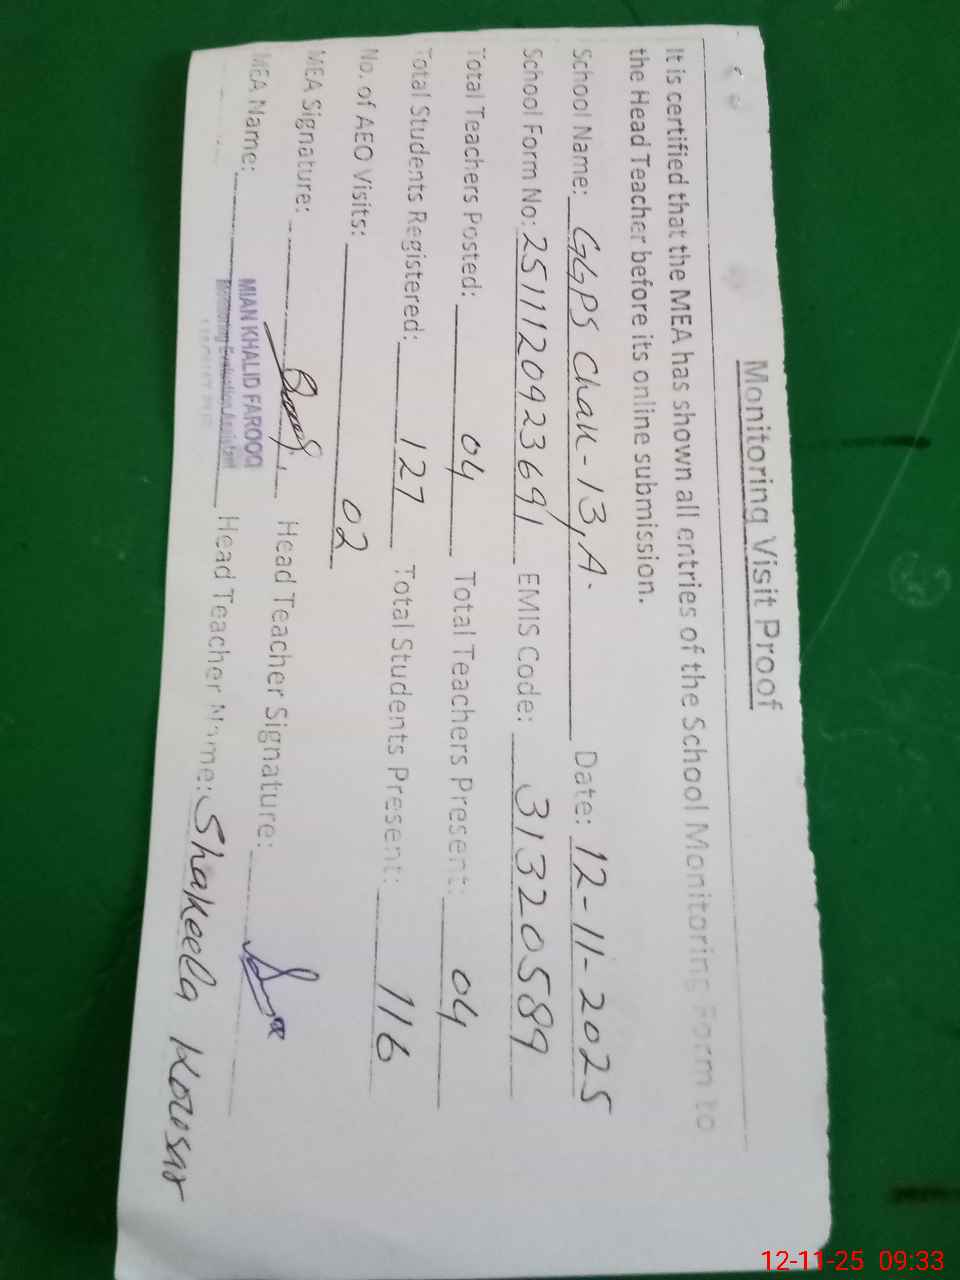 Monitoring Visit Proof
It is certified that the MEA has shown all entries of the School Monitoring Form to
the Head Teacher before its online submission.
School Name: GGPS Chak-13,A. Date: 12-11-2025
School Form No: 2511120923691 EMIS Code: 31320589
Total Teachers Posted: 04 Total Teachers Present: 04
Total Students Registered: 127 Total Students Present: 116
No. of AEO Visits: 02
MEA Signature: Head Teacher Signature:
MEA Name: MIAN KHALID FAROOQ Head Teacher Name: Shakeela Kousar
Monitoring Evaluation Assistant
12-11-25 09:33